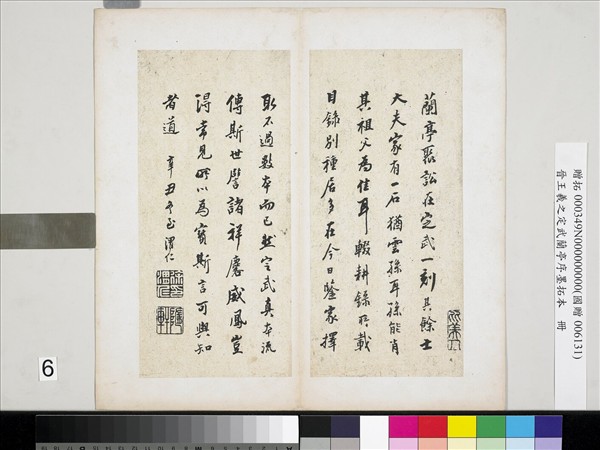 蘭亭聚訟在定武一刻其餘士
大夫家有一石猶雲孫耳孫能肖
其祖父為佳耳輟耕錄所載
目錄別種居多在今日鑒家擇
取不過數本而已然定武真本流
傳斯世譬諸祥麐威鳳豈
得常見所以為寶斯言可與知
者道 辛丑 渭仁
贈拓 000349N000000000(國贈 006131)
晉王羲之定武蘭亭序墨拓本 冊
6